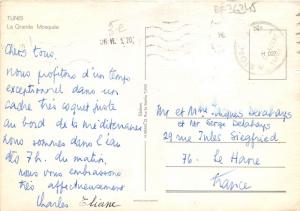 TUNIS
La Grande Mosquée
5e
BF36245
Chers tous,
Nous profitons d'un temps
exceptionnel dans un
cadre très coquet juste
au bord de la méditerranée
nous sommes dans l'eau
dès 7h. du matin,
nous vous embrassons
très affectueusement
Charles. Eliane
Mr et Mme Jacques Derabays
et Mr Serge Delabays
29 rue Jules Siegfried
76. Le Havre
France